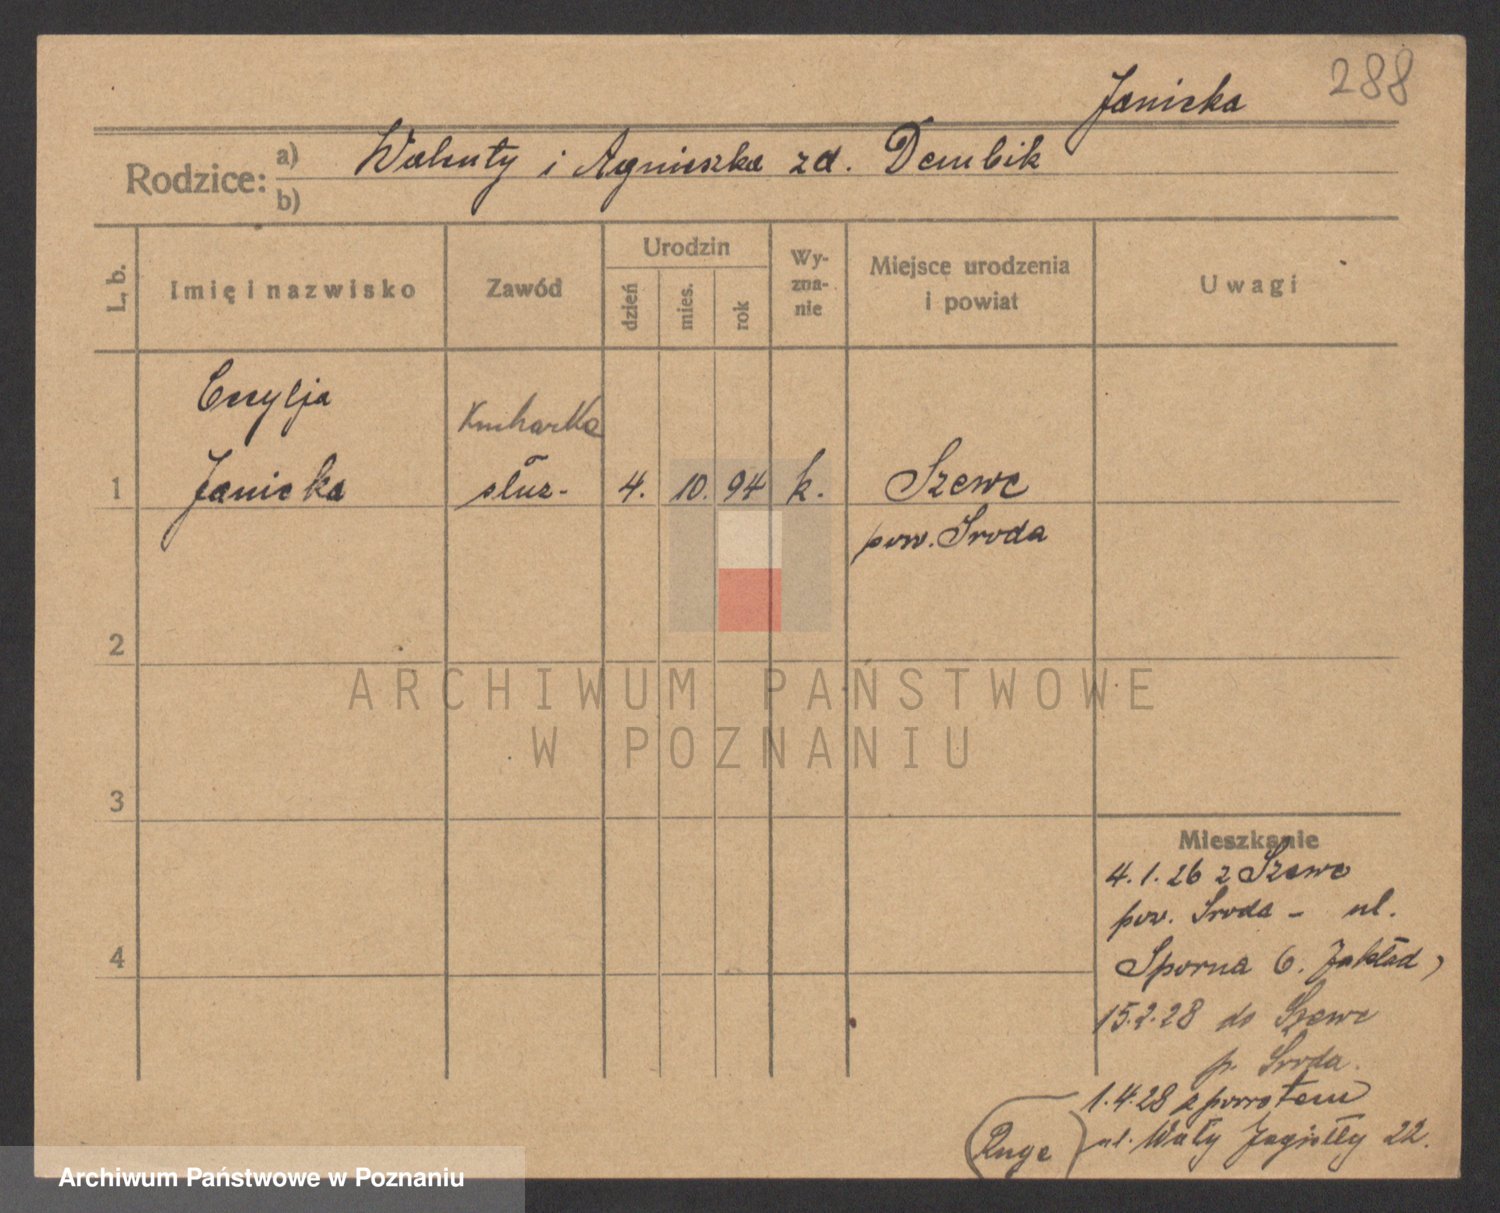 288
Janicka
Rodzice: a) b)
Walenty i Agnieszka zd. Dembik
L. b.
Imię i nazwisko
Zawód
Urodzin
dzień
mies.
rok
Wy-
zna-
nie
Miejsce urodzenia
i powiat
Uwagi
Cecylja
Kucharka
1 Janicka służ- 4. 10. 94 k. Szewc
pow. Środa
2
3
4
Mieszkanie
4.1.26 z Szewc
pow. Środa - ul.
Sporna 6. Zakład,
15.2.28 do Szewc
p. Środa.
1.4.28 z powrotem
ul. Wały Jagiełły 22.
Ruge
ARCHIWUM PAŃSTWOWE
W POZNANIU
Archiwum Państwowe w Poznaniu